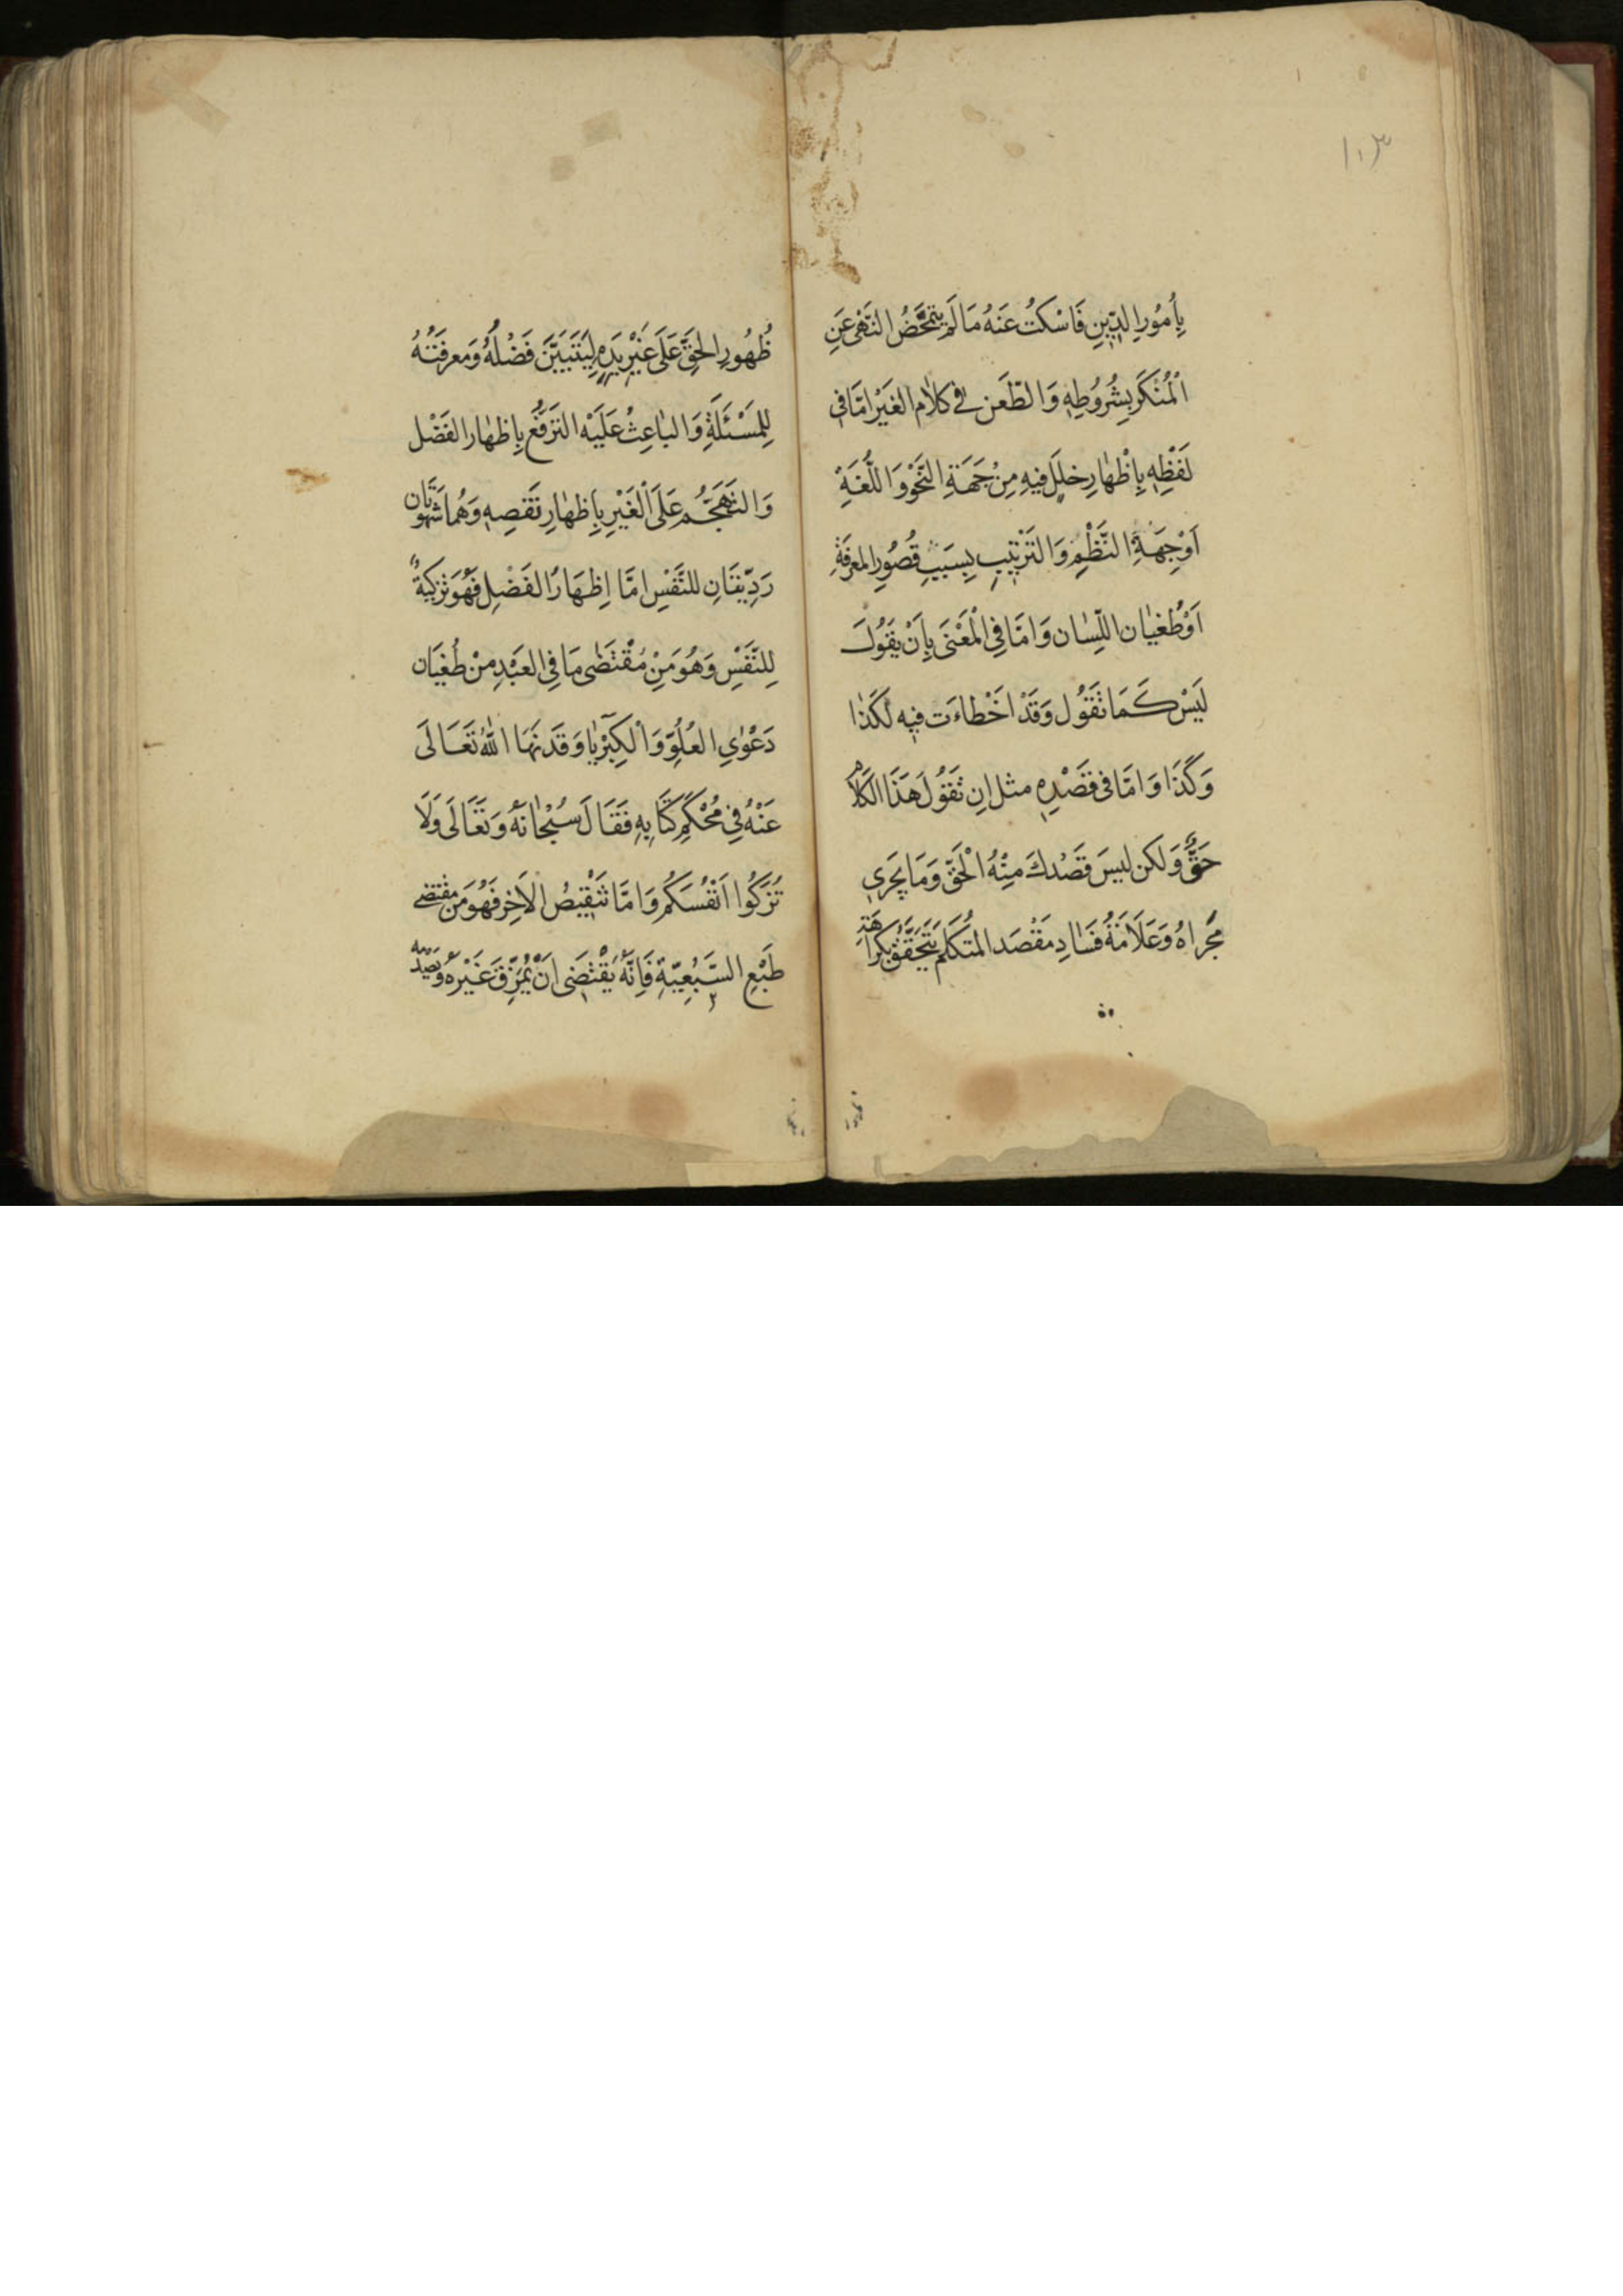 ١٠٣
بِأُمُورِ الدِّينِ فَاسْكُتْ عَنْهُ مَا لَمْ يَتَمَحَّضُ النَّهْىُ عَنِ
الْمُنْكَرِ بِشُرُوطِهِ وَالطَّعَن فِي كَلَامِ الغَيْرِ اِمَّا فِي
لَفْظِهِ بِاِظْهَارِ خَلَلٍ فِيهِ مِنْ جَهَةِ النَّحْوِ وَاللُّغَةِ
اَوْ جِهَةِ النَّظْمِ وَالتَّرْتِيبِ بِسَبَبِ قُصُورِ المَعْرِفَةِ
اَوْ طُغْيَان اللِّسَان وَاِمَّا فِي الْمَعْنَى بِاَنْ يَقُولَ
لَيْسَ كَمَا تَقُول وَقَدْ اَخْطَاءَت فِيهِ لَكَذَا
وَكَذَا وَاِمَّا فِى قَصْدِهِ مثل اِن تَقُولَ هَذَا الكَلَام
حَقٌّ وَلكن لَيسَ قَصْدكَ مِنْهُ الْحَقّ وَمَا يَجرِى
مَجْرَاهُ وَعَلَامَةُ فَسَادِ مَقْصَد المتُكَلم يَتَحَقَّقُ بِكَرَاهَةِ
ظُهُورِ الحَقِّ عَلَى غَيْرِ يَدِهِ لِيَتَبَيَّنَ فَضْلُهُ وَمَعرِفَتُهُ
لِلمَسْئَلَةِ وَالبَاعِثُ عَلَيْه التَرَفُّع بِاِظهَار الفَضْل
وَالتَهَجُّم عَلَى الْغَيْرِ بِاِظهَارِ نَقصِهِ وَهُمَا شَهوتَان
رَدِيّتَانِ للنَّفْسِ اِمَّا اِظهَارُ الفَضْلِ فَهُوَ تَزكيَةٌ
لِلنَّفْسِ وَهُوَ مَنِ مُقْتَضٰى مَا فِى العَبْدِ مِنْ طُغْيَان
دَعْوٰي العُلُوِّ وَالْكِبْرِيَآ وَقَد نَهَا اللّٰهُ تَعَالَى
عَنْهُ فِي مُحْكَمِ كَتَابِهِ فَقَالَ سُبْحَانهُ وَتَعَالَى وَلَا
تُزَكُّوا اَنْفُسَكُمْ وَاِمَّا تَنْقِيصُ الاٰخِرِ فَهُوَ مِن مقتضى
طَبْعِ السَّبُعِيّةِ فَاِنَّهُ يَقْتَضَى اَنْ يُمَزِّقَ غَيْرَهُ وَيصدّمه